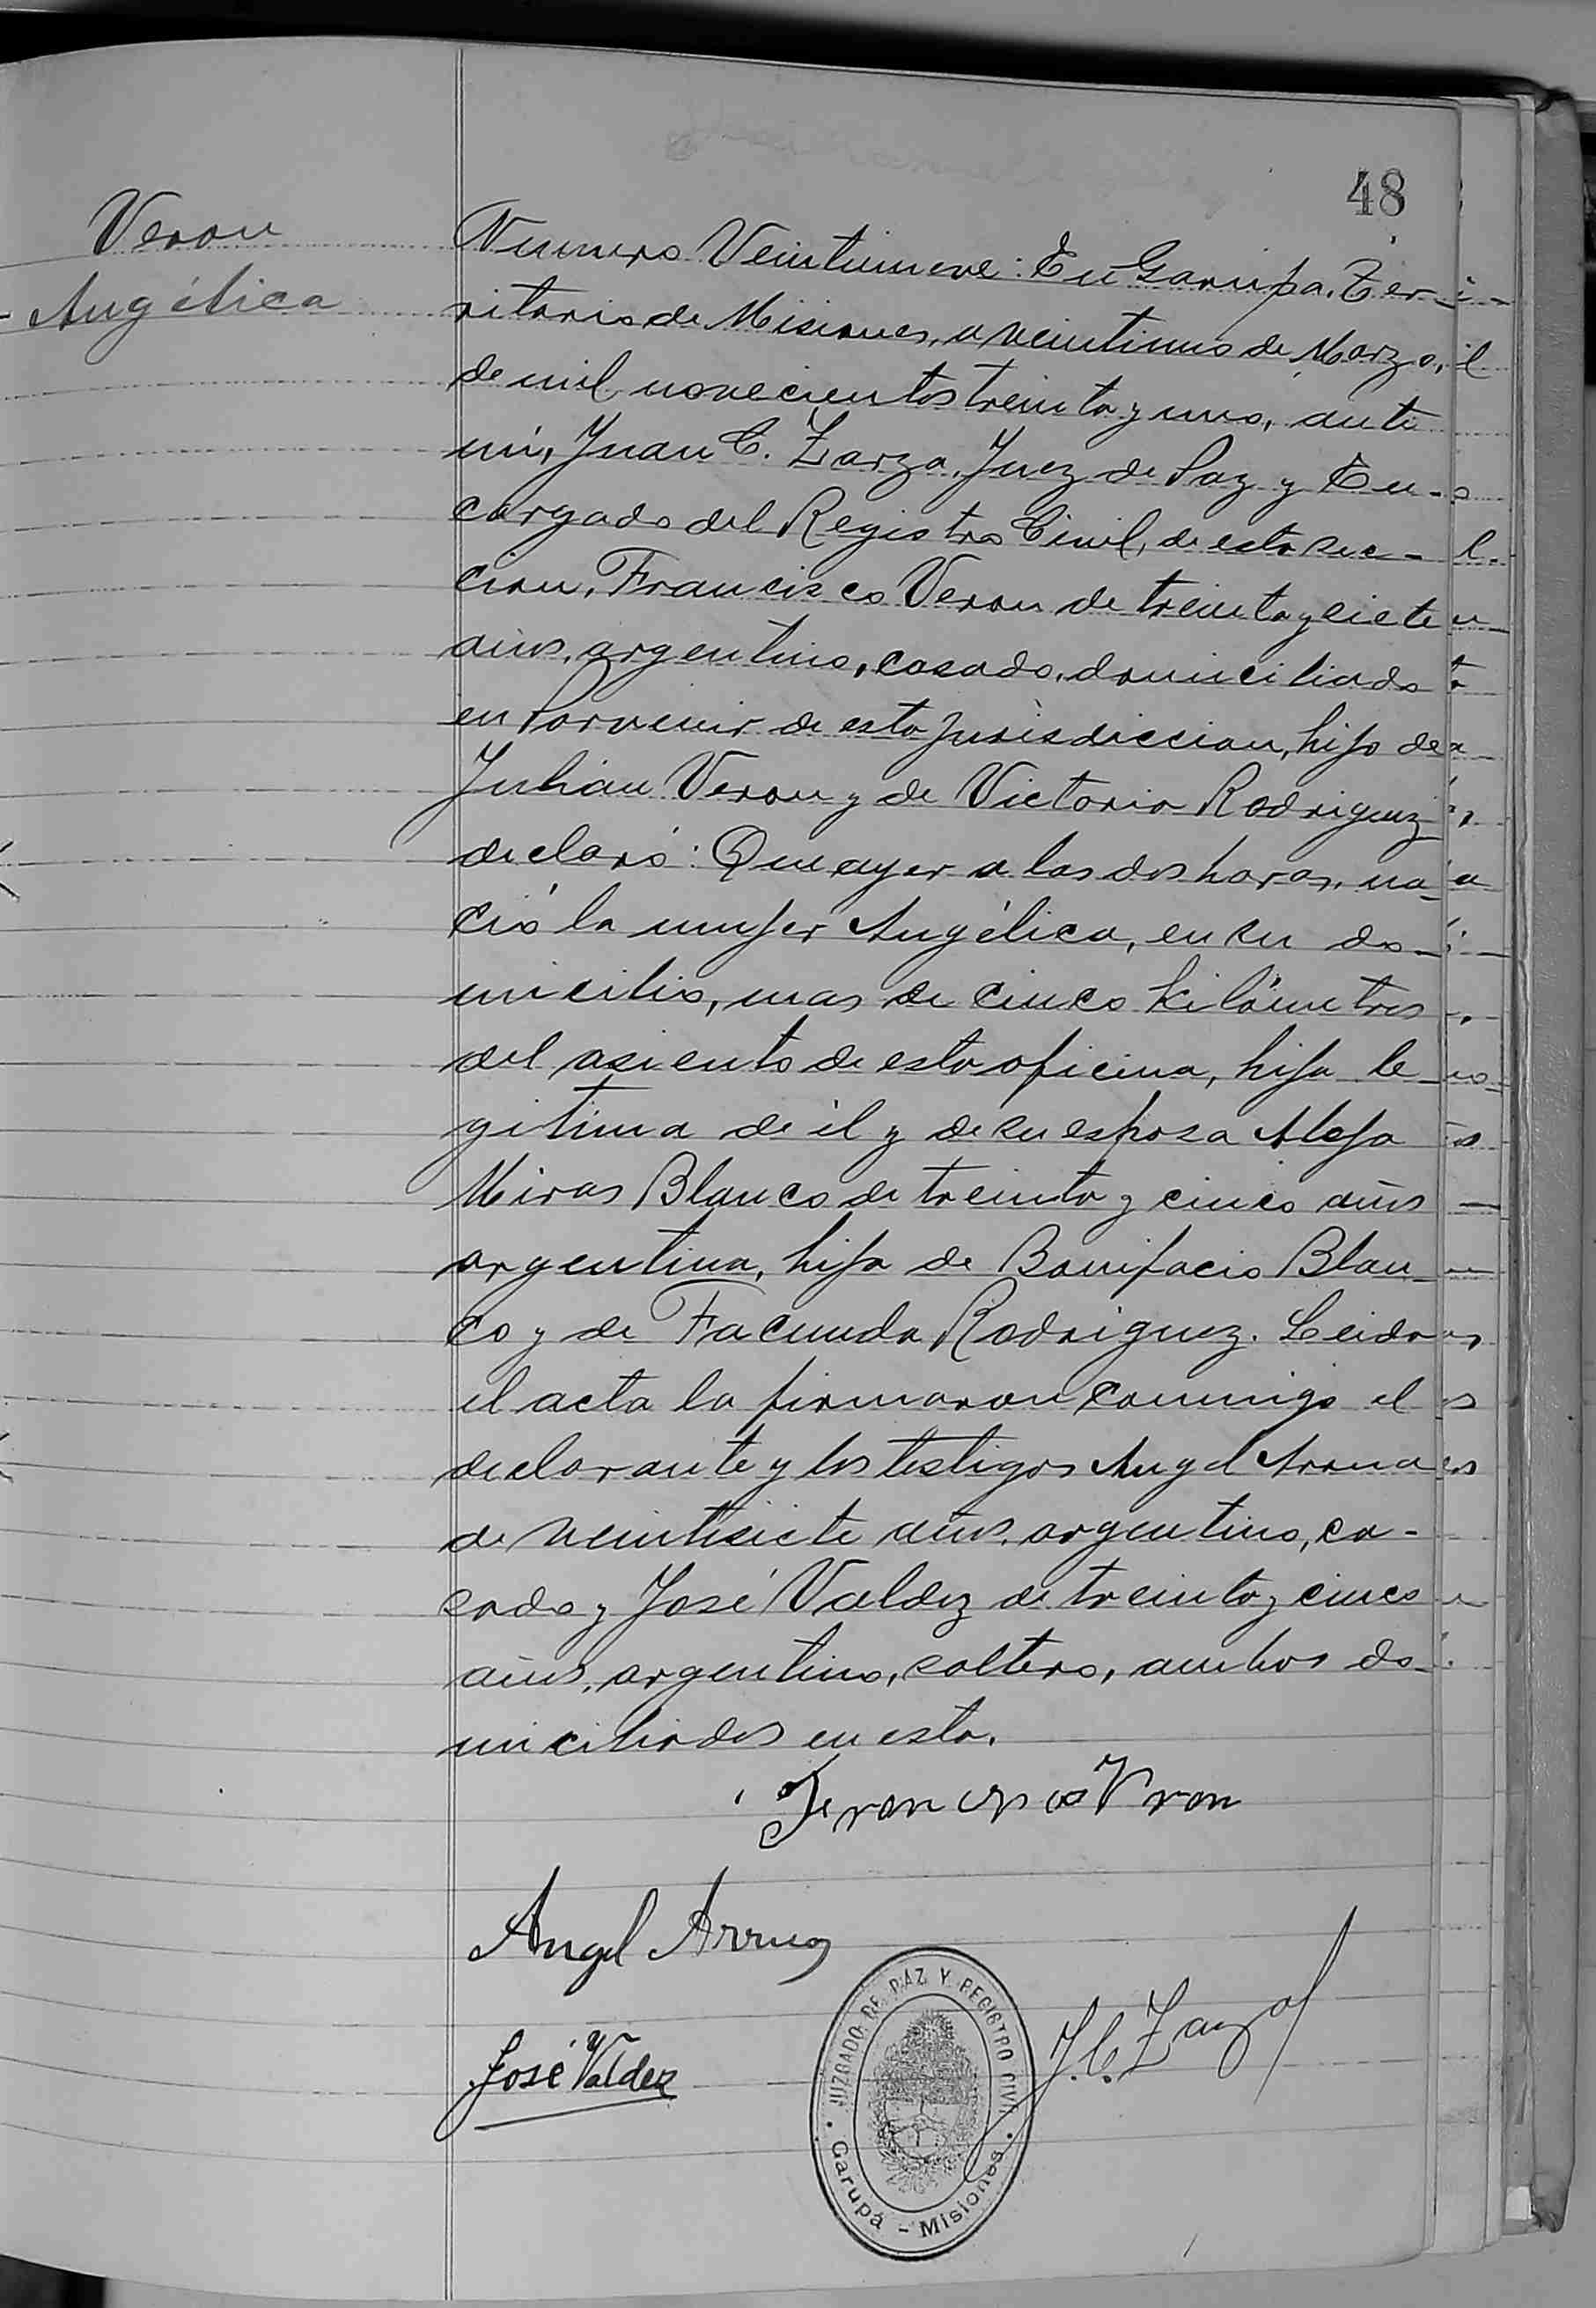 48
Veron
Angélica
Numero Veintinueve: En Garupa, Ter-
ritorio de Misiones, a veintiuno de Marzo,
de mil novecientos treinta y uno, ante
mi, Juan C. Zarza, Juez de Paz y En-
cargado del Registro Civil, de esta sec-
cion, Francisco Veron de treinta y siete
años, argentino, casado, domiciliado
en Porvenir de esta jurisdiccion, hijo de
Julian Veron y de Victoria Rodriguez
declaró: Que ayer a las dos horas, na-
ció la mujer Angélica, en su do-
micilio, mas de cinco kilómetros
del asiento de esta oficina, hija le-
gitima de él y de su esposa Aleja
Miras Blanco de treinta y cinco años
argentina, hija de Bonifacio Blan-
co y de Facunda Rodriguez. Leida
el acta la firmaron conmigo el
declarante y los testigos Angel
de veintisiete años, argentino, ca-
sado y José Valdez de treinta y cinco
años, argentino, soltero, ambos do-
miciliados en esta.
Angel
José Valdez
J. C. Zarza
JUZGADO DE PAZ Y REGISTRO CIVIL
Garupá - Misiones